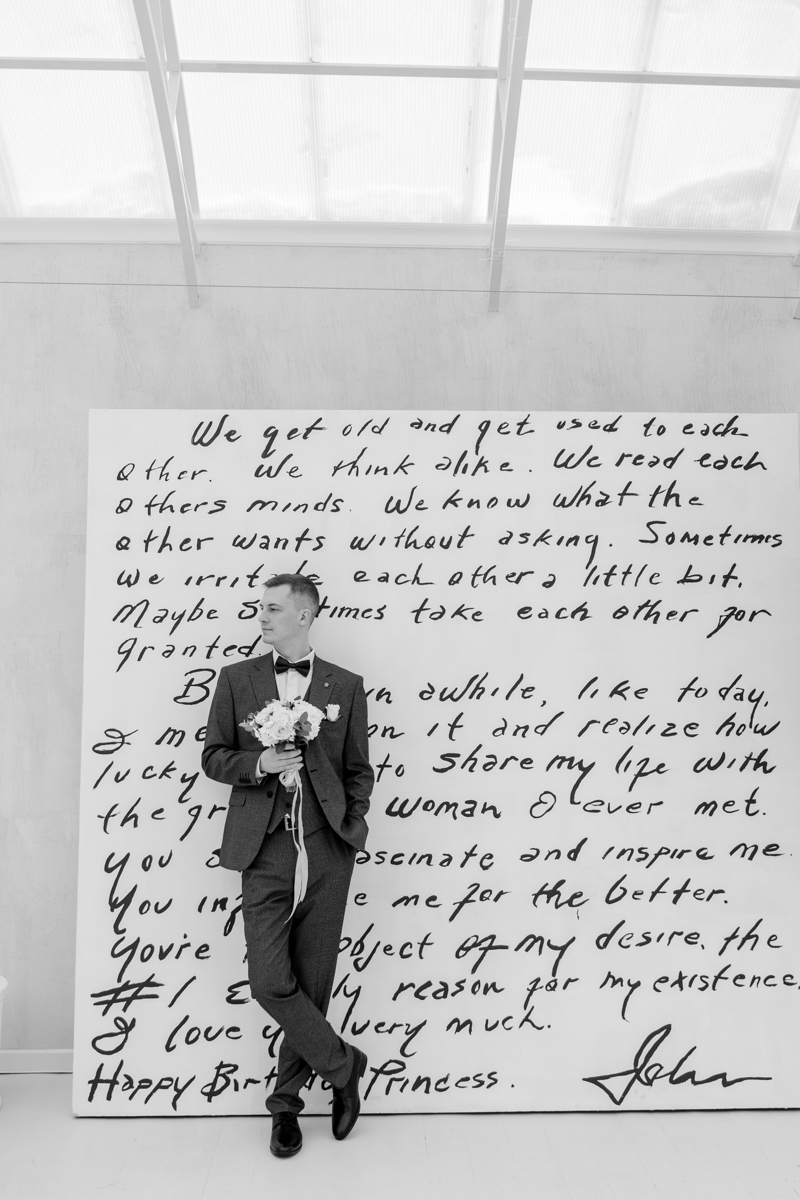 We get old and get used to each
other. We think alike. We read each
others minds. We know what the
other wants without asking. Sometimes
we irritate each other a little bit.
Maybe S times take each other for
granted.
B awhile, like today,
I me on it and realize how
lucky to share my life with
the gr woman I ever met.
You fascinate and inspire me.
You inf e me for the better.
You're object of my desire, the
#1 E ly reason for my existence.
I love y very much.
Happy Birthday Princess.
John